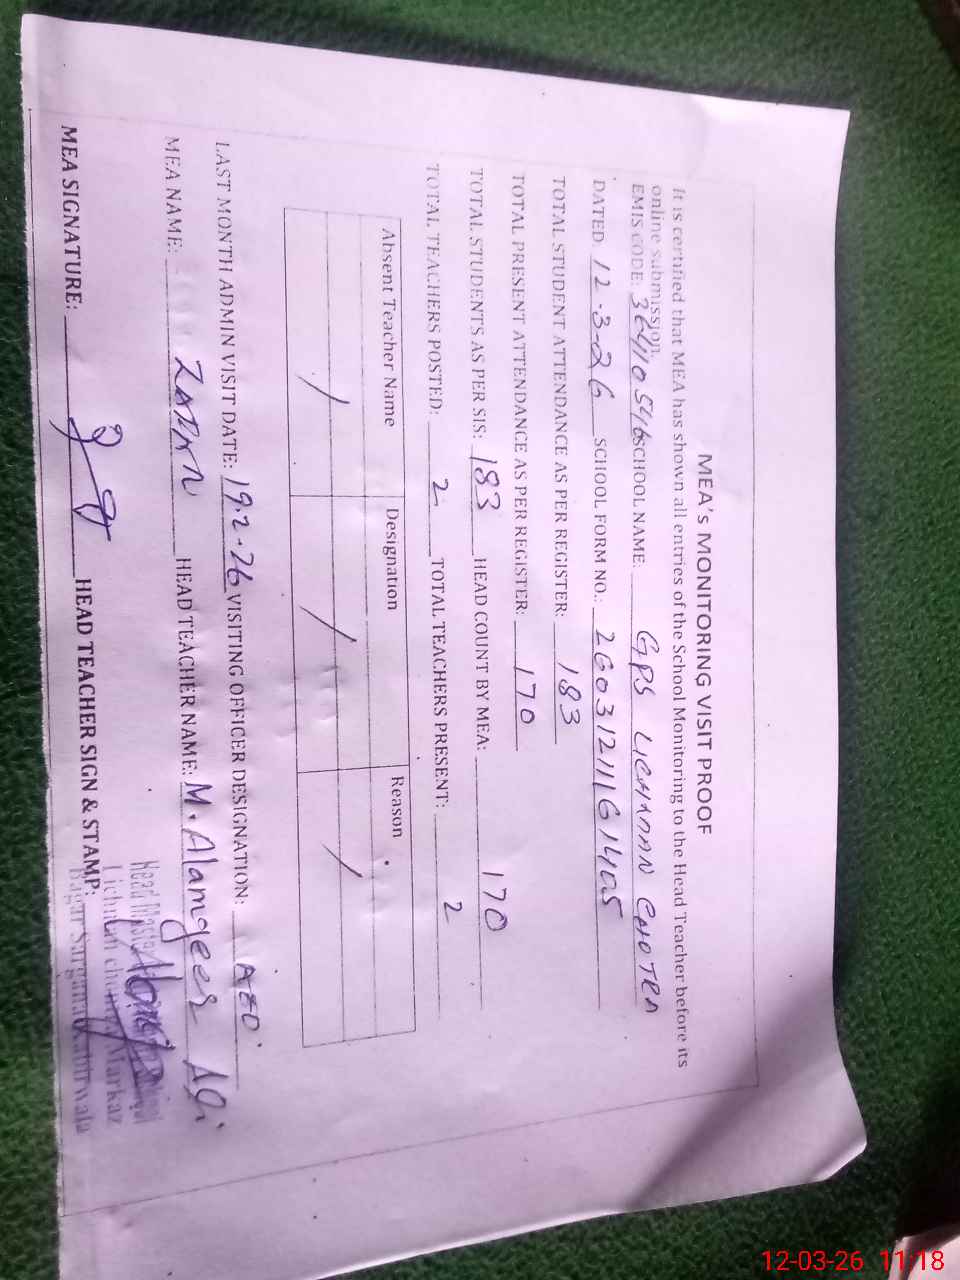 MEA's MONITORING VISIT PROOF
It is certified that MEA has shown all entries of the School Monitoring to the Head Teacher before its
online submission.
EMIS CODE: 36410546 SCHOOL NAME: GPS LICHADAN CHOTRA
DATED 12-3-26 SCHOOL FORM NO.: 2603121116141405
TOTAL STUDENT ATTENDANCE AS PER REGISTER: 183
TOTAL PRESENT ATTENDANCE AS PER REGISTER: 170
TOTAL STUDENTS AS PER SIS: 183 HEAD COUNT BY MEA: 170
TOTAL TEACHERS POSTED: 2 TOTAL TEACHERS PRESENT: 2
Absent Teacher Name Designation Reason
/ / /
LAST MONTH ADMIN VISIT DATE: 19.2.26 VISITING OFFICER DESIGNATION: AEO
MEA NAME: HEAD TEACHER NAME: M. Alamgeer
MEA SIGNATURE: HEAD TEACHER SIGN & STAMP:
Head
Markaz
12-03-26 11:18